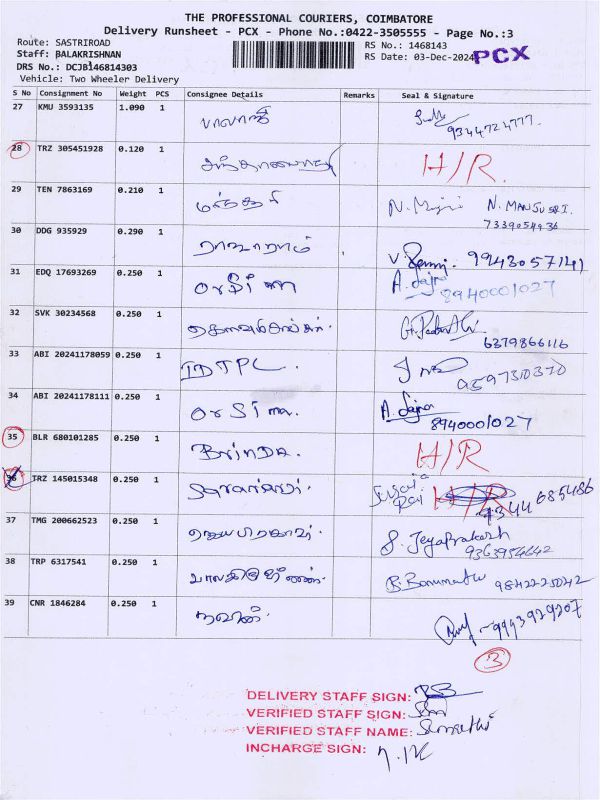 THE PROFESSIONAL COURIERS, COIMBATORE
Delivery Runsheet - PCX - Phone No.:0422-3505555 - Page No.:3
Route: SASTRIROAD
Staff: BALAKRISHNAN
DRS No.: DCJB146814303
Vehicle: Two Wheeler Delivery
RS No.: 1468143
RS Date: 03-Dec-2024
PCX
S No Consignment No Weight PCS Consignee Details Remarks Seal & Signature
27 KMU 3593135 1.090 1 பாலாஜி 9344724777.
28 TRZ 305451928 0.120 1 H/R.
29 TEN 7863169 0.210 1 N. MANSURI. 7339054936
30 DDG 935929 0.290 1 ராஜாராம் 9943057141
31 EDQ 17693269 0.250 1 A. 8940001027
32 SVK 30234568 0.250 1 6379866116
33 ABI 20241178059 0.250 1 IDTPL. 9597310370
34 ABI 20241178111 0.250 1 A. 8940001027
35 BLR 680101285 0.250 1 BrindA. H/R
36 TRZ 145015348 0.250 1 H/R 9344685486
37 TMG 200662523 0.250 1 ஜெயபிரகாஷ். S. JeyaPrakash 9363954642
38 TRP 6317541 0.250 1 B. Banumathi 9842225042
39 CNR 1846284 0.250 1 நவீன். 9993929207
3
DELIVERY STAFF SIGN:
VERIFIED STAFF SIGN:
VERIFIED STAFF NAME: Sumathi
INCHARGE SIGN: